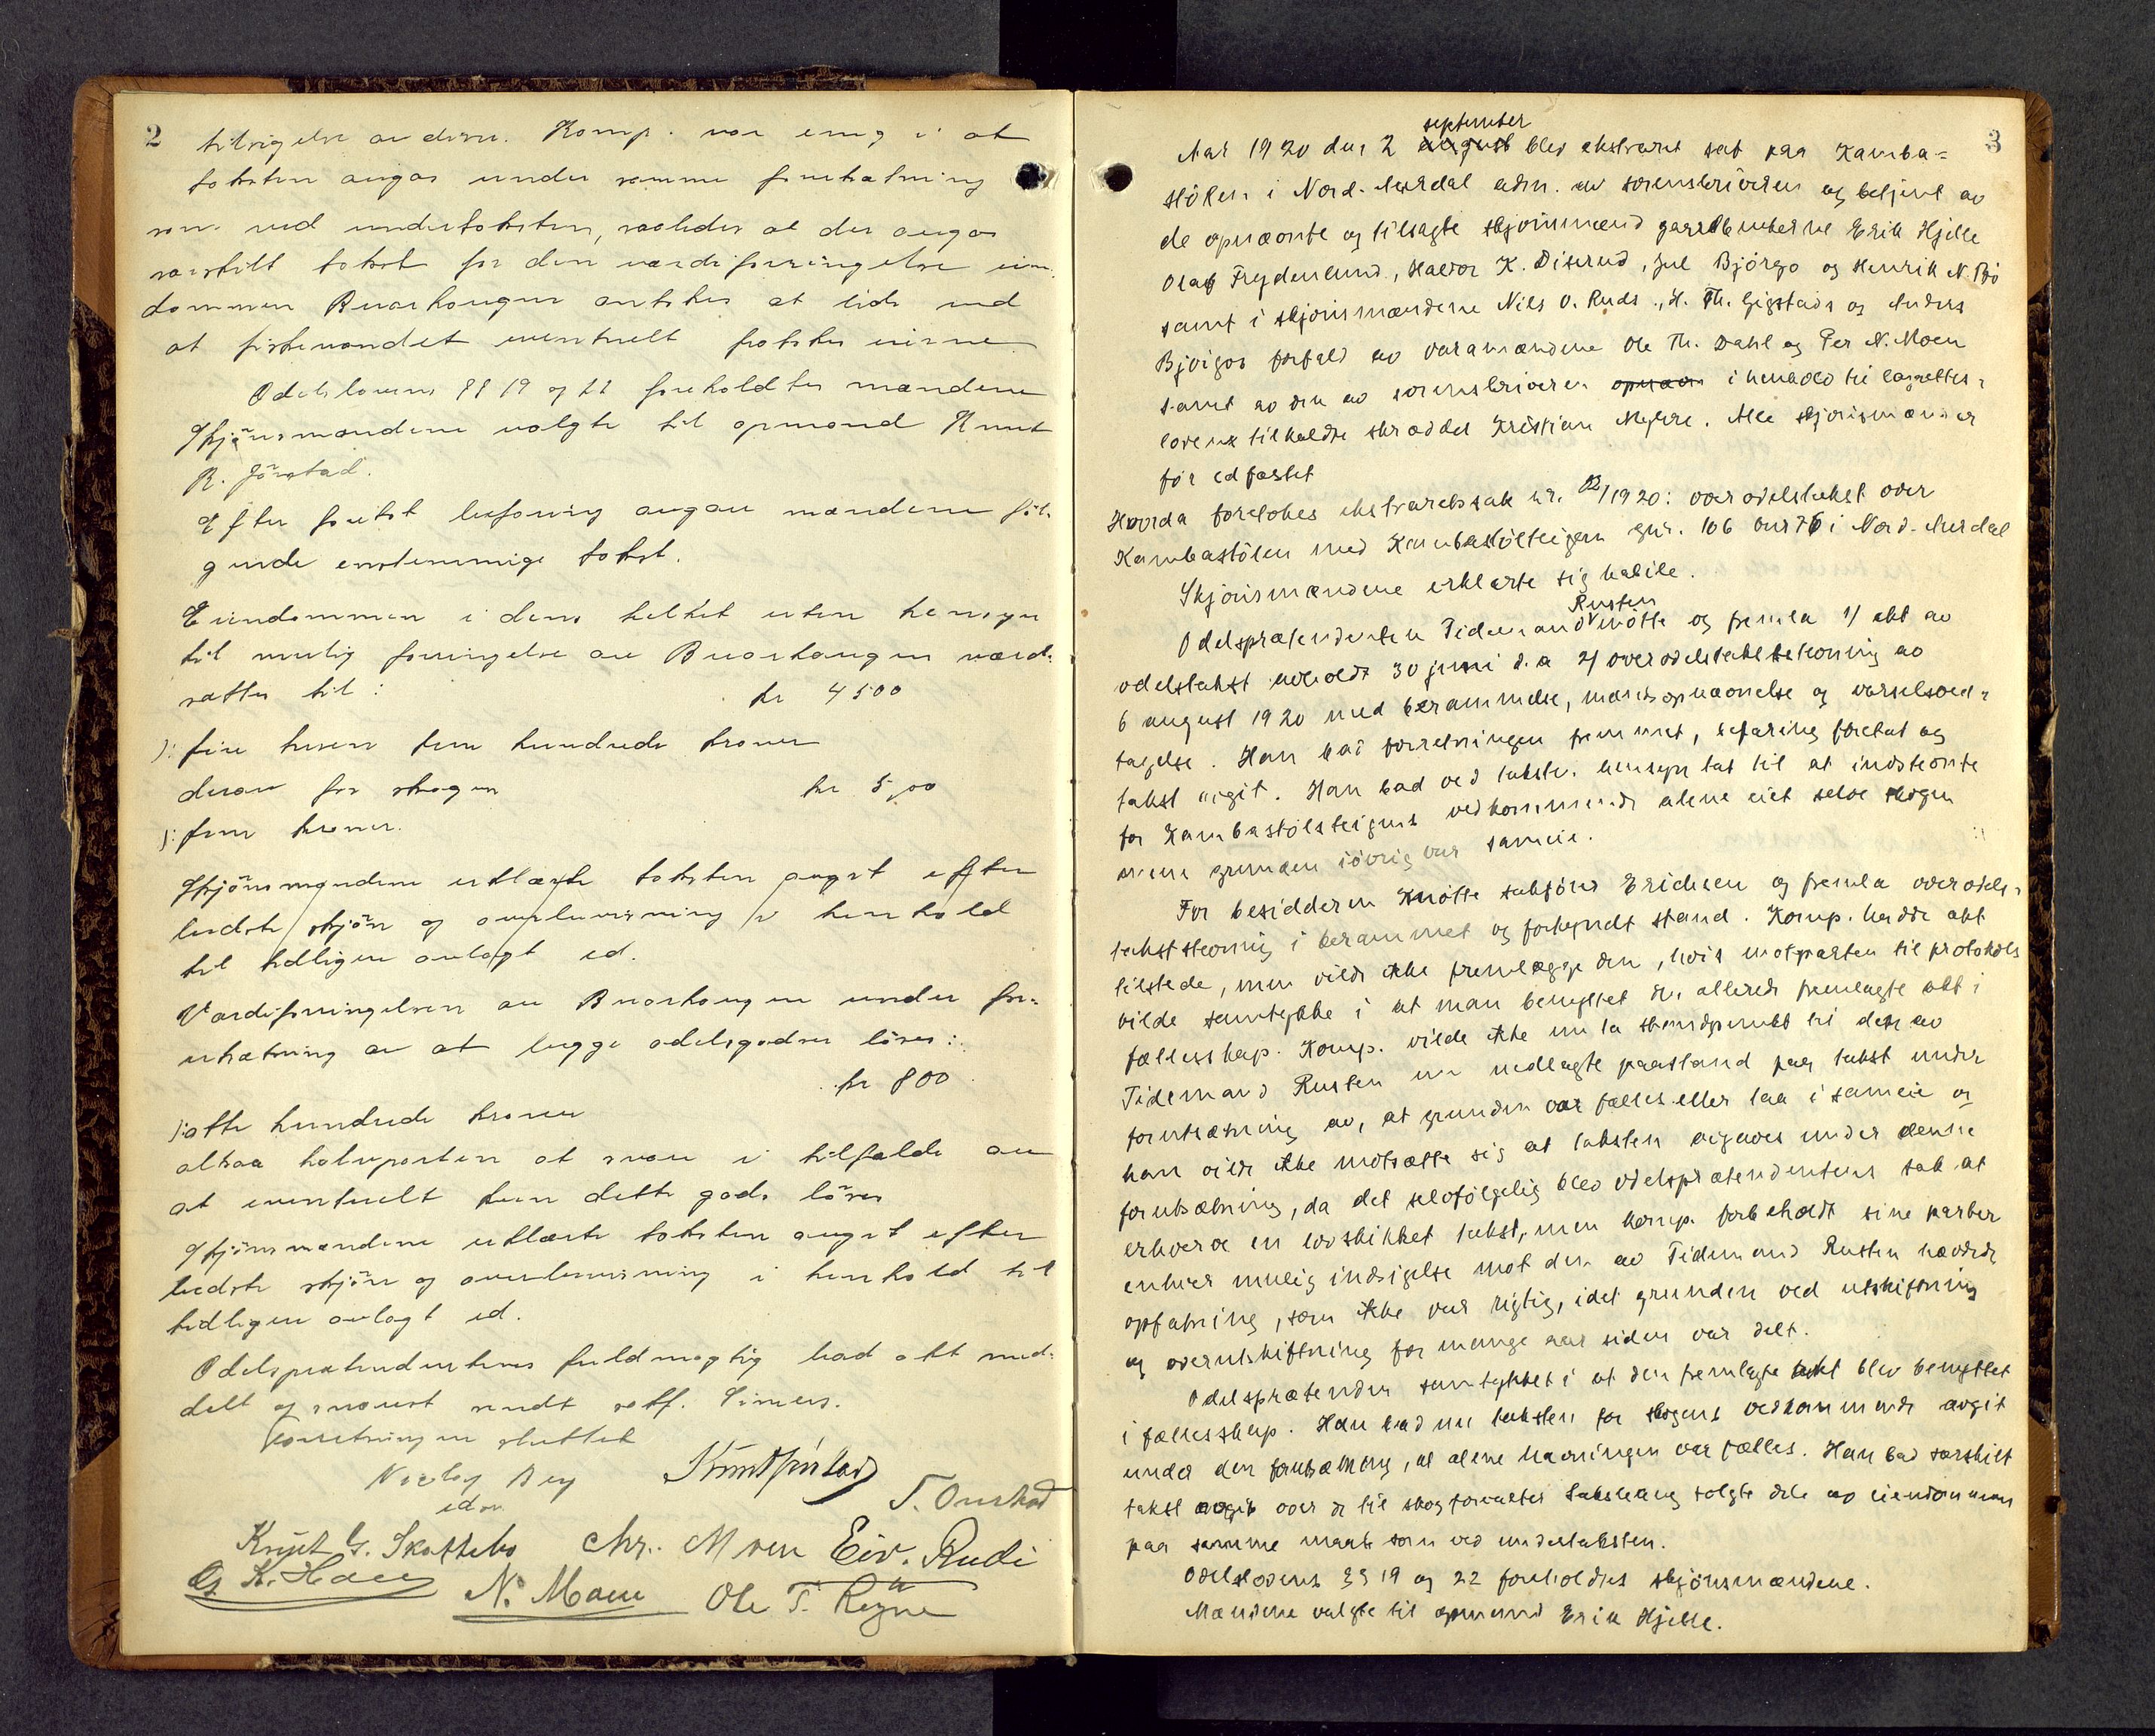 2
tilsigelse av disse. Komp. var enig i at
taksten avgas under samme forutsætning
som ved undertaksten, saaledes at der avgas
særskilt takst for den værdiforringelse eien
dommen Buarhaugen antokes at lide ved
at fiskevandet eventuelt fratokes eierne.
Odelslovens §§ 19 og 22 foreholdtes mændene
Skjønsmændene valgte til opmand Knut
R. Jørstad.
Efter foretat befaring avgav mændene føl-
gende enstemmige takst.
Eiendommen i dens helhet uten hensyn
til mulig forringelse av Buarhaugen værd-
sættes til: kr 4500
): fire tusen fem hundrede kroner
derav for skogen kr 5,00
): fem kroner.
Skjønsmændene erklærte taksten avgit efter
bedste skjøn og overbevisning i henhold
til tidligere avlagt ed.
Værdiforringelsen av Buarhaugen under for-
utsætning av at begge odelsgodser løses:
kr 800
): otte hundrede kroner
altsaa halvparten at svare i tilfælde av
at eventuelt kun dette gods løses
Skjønsmændene erklærte taksten avgit efter
bedste skjøn og overbevisning i henhold til
tidligere avlagt ed.
Odelsprætendentens fuldmægtig bad akt med-
delt og snarest sendt
Forretningen sluttet
Nicolay Berg
edsv.
Knut Jørstad
T. Onstad
Knut G. Skattebo Chr. Moen Eiv. Rudi
N. Moen Ole T. Røgne
3
september
Aar 1920 den 2 august blev ekstraret sat paa Kamba=
stølen i Nord-Aurdal adm. av sorenskriveren og betjent av
de opnævnte og tilsagte skjønsmænd gaardbrukerne Erik Hjelle
Olaf Frydenlund, Halvor K. Diserud, Jul Bjørgo og Henrik N. Bø
samt i skjønsmændene Nils O. Ruds, H. Th. Gigstads og Anders
Bjørgos forfald av varamændene Ole Th. Dahl og Per N. Moen
samt av den av sorenskriveren opnævn i henhold til lagrettes-
lovens tilkaldte skrædder Kristian Myhre. Alle skjønsmænd er
før edfæstet
Hvorda foretokes ekstraretssak nr. /1920: overodelstakst over
Kambastølen med Kambastølteigen gnr. 106 bnr 76 i Nord-Aurdal
Skjønsmændene erklærte sig habile.
Rusten
Odelsprætendenten Tidemand møtte og fremla 1/ akt av
odelstakst avholdt 30 juni d.a 2/ overodelstakststevning av
6 august 1920 med berammelse, mandsopnævnelse og varselsved-
tagelse. Han bad forretningen fremmet, befaring foretat og
takst avgit. Han bad ved taksten hensyn tat til at indstevnte
for Kambastølsteigens vedkommende alene eiet selve skogen
mens grunden iøvrig var sameie.
For besidderen møtte sakfører Erichsen og fremla overodels-
takststevning i berammet og forkyndt stand. Komp. hadde akt
tilstede, men vilde ikke fremlægge den, hvis motparten til protokols
vilde samtykke i at man benyttet den allerede fremlagte akt i
fællesskap. Komp. vilde ikke nu ta standpunkt til den av
Tidemand Rusten nu nedlagte paastand paa takst under
forutsætning av, at grunden var fælles eller laa i sameie og
han vilde ikke motsætte sig at taksten avgaves under denne
forutsætning, da det selvfølgelig blev odelsprætendentens sak at
erhverve en lovskikket takst, men komp. forbeholdt sine parter
enhver mulig indsigelse mot den av Tidemand Rusten hævdede
opfatning, som ikke var rigtig, idet grunden ved utskiftning
og overutskiftning for mange aar siden var delt.
Odelsprætenden samtykket i at den fremlagte akt blev benyttet
i fællesskap. Han bad nu taksten for skogens vedkommende avgit
under den forutsætning, at alene havningen var fælles. Han bad særskilt
takst avgit over de til skogforvalter solgte dele av eiendommen
paa samme maate som ved undertaksten.
Odelslovens §§ 19 og 22 foreholdtes skjønsmændene.
Mændene valgte til opmand Erik Hjelle.